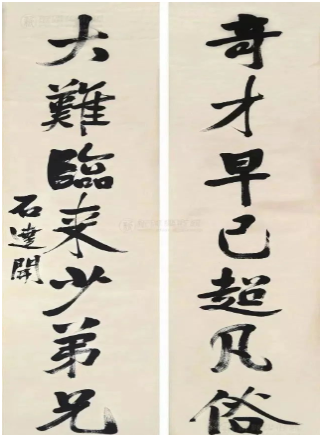 奇才早已超凡俗
大難臨来少弟兄
石達開